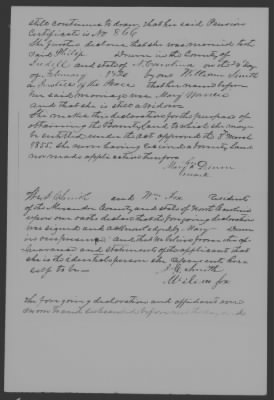 still continues to draw, that her said Pension
Certificate is No 866
She further declares that she was married to the
said Philip Dunn in the County of
Iredell and state of N Carolina on the day
of February 1820 by one William Smith
a Justice of the Peace that her name before
her said marriage was Mary
and that she is still a Widow
She makes this declaration for the purpose of
obtaining the Bounty Land to which she may
be entitled under the act approved the 3 March
1855. She never having received a bounty Land
nor made application therefor
Mary Dunn
mark
Smith and Wm Fox Residents
of the Alexander County and state of North Carolina
upon our oaths declare that the foregoing declaration
was signed and acknowledged by Mary Dunn
in our presence and that we believe from the
appearance and statement of the applicant that
she is the identical person she represents her
self to be
Smith
William Fox
The foregoing declaration and affidavit were
sworn to and subscribed before me the day and